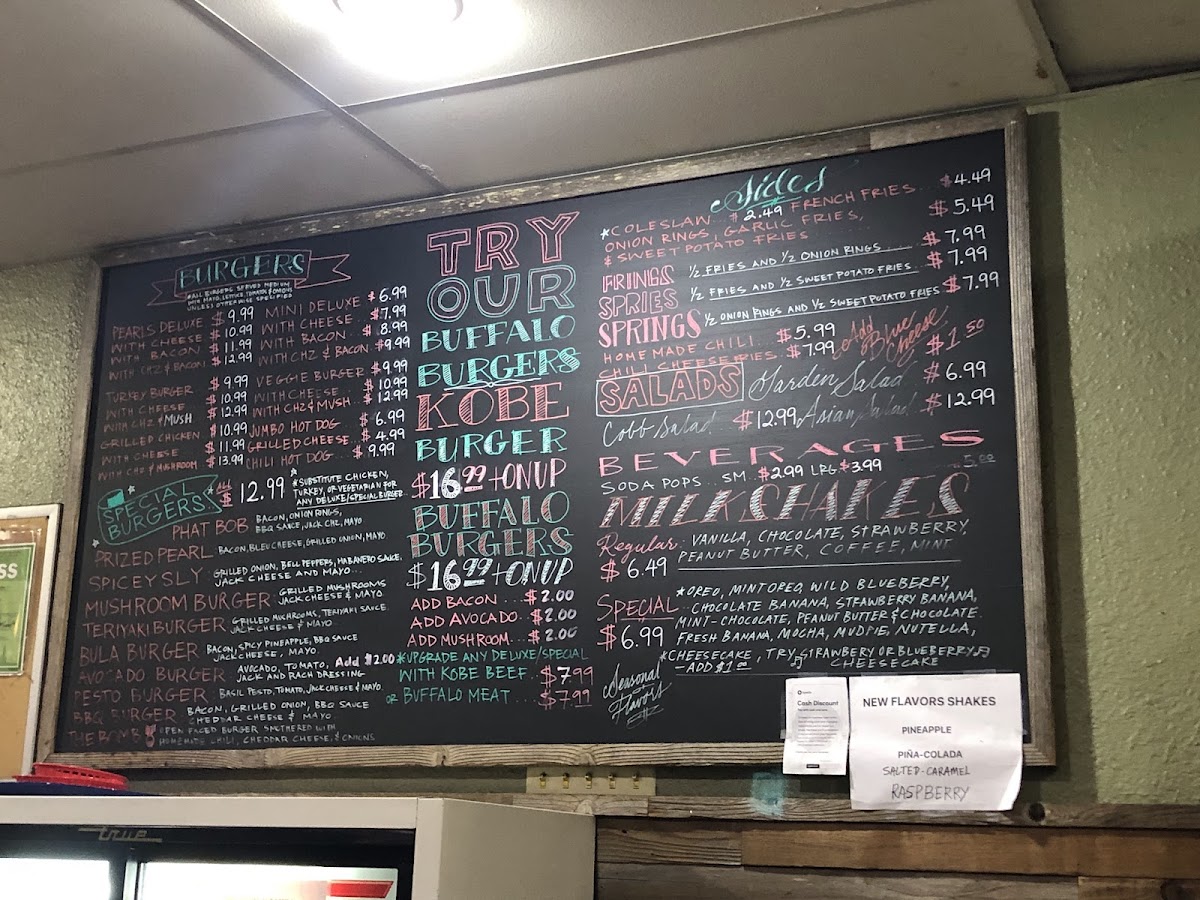 BURGERS
*ALL BURGERS SERVED MEDIUM
WITH MAYO, LETTUCE, TOMATO & ONIONS
UNLESS OTHERWISE SPECIFIED
PEARLS DELUXE $9.99
WITH CHEESE $10.99
WITH BACON $11.99
WITH CHZ & BACON $12.99
TURKEY BURGER $9.99
WITH CHEESE $10.99
WITH CHZ & MUSH $12.99
GRILLED CHICKEN $10.99
WITH CHEESE $11.99
WITH CHZ & MUSHROOM $13.99
MINI DELUXE $6.99
WITH CHEESE $7.99
WITH BACON $8.99
WITH CHZ & BACON $9.99
VEGGIE BURGER $9.99
WITH CHEESE $10.99
WITH CHZ & MUSH $12.99
JUMBO HOT DOG $6.99
GRILLED CHEESE $4.99
CHILI HOT DOG $9.99
SPECIAL BURGERS ALL $12.99
*SUBSTITUTE CHICKEN,
TURKEY, OR VEGETARIAN FOR
ANY DELUXE/SPECIAL BURGER
PHAT BOB BACON, ONION RINGS,
BBQ SAUCE, JACK CHZ, MAYO
PRIZED PEARL BACON, BLEU CHEESE, GRILLED ONION, MAYO
SPICEY SLY GRILLED ONION, BELL PEPPERS, HABANERO SAUCE,
JACK CHEESE AND MAYO
MUSHROOM BURGER GRILLED MUSHROOMS
JACK CHEESE & MAYO
TERIYAKI BURGER GRILLED MUSHROOMS, TERIYAKI SAUCE
JACK CHEESE & MAYO
BULA BURGER BACON, SPICY PINEAPPLE, BBQ SAUCE
JACK CHEESE, MAYO
AVOCADO BURGER AVOCADO, TOMATO, Add $2.00
JACK AND RACH DRESSING
PESTO BURGER BASIL PESTO, TOMATO, JACK CHEESE & MAYO
BBQ BURGER BACON, GRILLED ONION, BBQ SAUCE
CHEDDAR CHEESE & MAYO
THE BOMB OPEN FACED BURGER SMOTHERED WITH
HOMEMADE CHILI, CHEDDAR CHEESE, & ONIONS
TRY
OUR
BUFFALO
BURGERS
KOBE
BURGER
$16.99 + ON UP
BUFFALO
BURGERS
$16.99 + ON UP
ADD BACON $2.00
ADD AVOCADO $2.00
ADD MUSHROOM $2.00
*UPGRADE ANY DELUXE/SPECIAL
WITH KOBE BEEF $7.99
OR BUFFALO MEAT $7.99
Sides
*COLESLAW $2.49 FRENCH FRIES $4.49
ONION RINGS, GARLIC FRIES,
& SWEET POTATO FRIES $5.49
FRINGS ½ FRIES AND ½ ONION RINGS $7.99
SPRIES ½ FRIES AND ½ SWEET POTATO FRIES $7.99
SPRINGS ½ ONION RINGS AND ½ SWEET POTATO FRIES $7.99
HOME MADE CHILI $5.99
CHILI CHEESE FRIES $7.99
Add Blue Cheese $1.50
SALADS Garden Salad $6.99
Cobb Salad $12.99 Asian Salad $12.99
BEVERAGES
SODA POPS SM $2.99 LRG $3.99 5.00
MILKSHAKES
Regular: VANILLA, CHOCOLATE, STRAWBERRY,
$6.49 PEANUT BUTTER, COFFEE, MINT
Special $6.99
*OREO, MINT OREO, WILD BLUEBERRY,
CHOCOLATE BANANA, STRAWBERRY BANANA,
MINT-CHOCOLATE, PEANUT BUTTER & CHOCOLATE
FRESH BANANA, MOCHA, MUDPIE, NUTELLA,
*CHEESECAKE, TRY STRAWBERY OR BLUEBERRY
ADD $1.00 CHEESECAKE
Seasonal
Flavors
Cash Discount
NEW FLAVORS SHAKES
PINEAPPLE
PIÑA-COLADA
SALTED-CARAMEL
RASPBERRY
true
SS